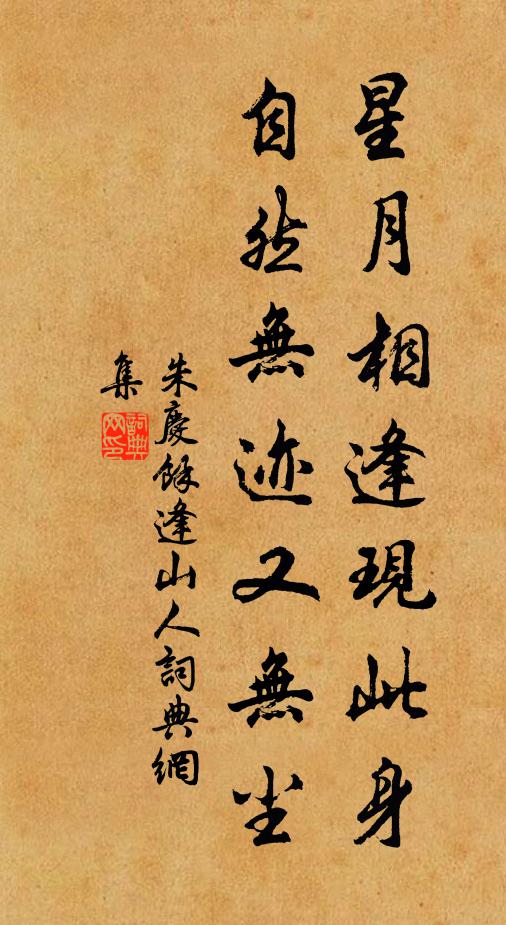 星月相逢現此身
自然無迹又無尘
朱慶餘逢山人詞典網
集
詞典
网印